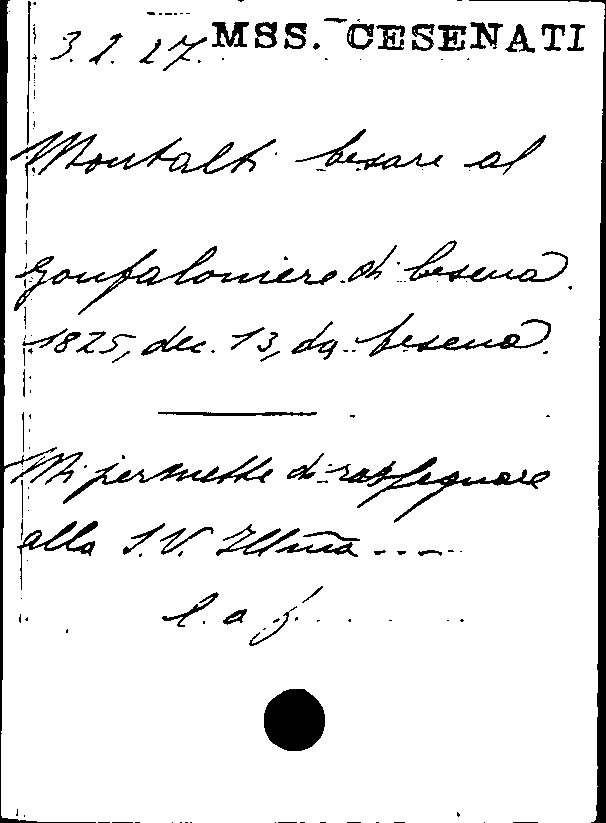 3. 2. 27. MSS. CESENATI
Montalti Cesare al
Gonfaloniere di Cesena.
1825, dec. 13, da Cesena.
Mi permette di rassegnare
alla S. V. Illma ....
l. a f. . . . .